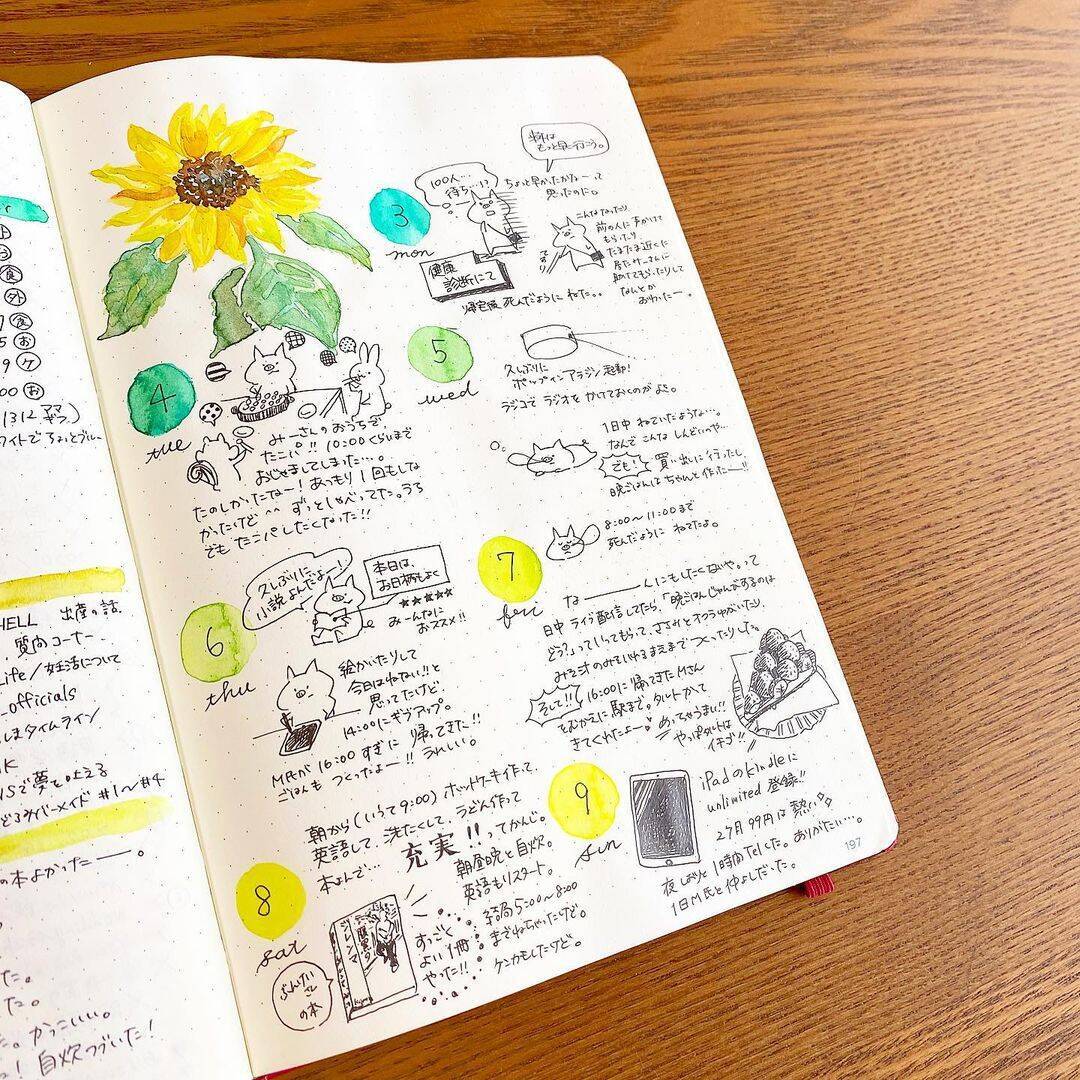 HELL 出産の話
質問コーナー
Life/妊活について
_officials
しまタイムライン
NSで夢を叶える
#1〜#4
の本よかったー。
かっこいい。
自炊つづいた!
3
mon
100人…
待ち…!?
ちょっと早かったかなーって
思ったのに。
来年は
もっと早く行こう。
健康
診断にて
こんなったり
前の人に声かけて
もらったり
たまたま近くに
助けてもらったりして
なんとか
おわったー。
帰宅後、死んだように ねた。。
4
tue
みーさんのおうちで、
たこパ!! 10:00くらいまで
おじゃましてしまった…。
たのしかったなー! あっもり 1回もしな
かったけど ^^ ずっとしゃべってた。うち
でも たこパしたくなった!!
5
wed
久しぶりに
ポップインアラジン起動!
ラジコで ラジオを かけておくのが よき。
1日中 ねていたような…。
なんで こんな しんどいのや…
でも!
買い出しに行ったし、
晩ごはんは ちゃんと 作ったーー!!
6
thu
久しぶりに
小説よんだよー!
本日は、
お日柄もよく
★★★★★
みーんなに
おススメ!!
絵かいたりして
今日はねない!!と
思ってたけど
14:00にギブアップ。
M氏が 16:00 すぎに 帰ってきた!!
ごはんも つくったよー!! うれしい。
7
fri
8:00〜11:00まで
死んだように ねてたよ。
なーーーんにもしたくないや。って
日中 ライブ配信してたら、「晩ごはんじゃんけするのは
どう?」っていってもらって、ささみとオクラゆがいたり、
みそ汁のみそいれるまえまで つくったりした。
そして!!
16:00に 帰ってきたMさん
をむかえに 駅まで。タルトかって
きてくれたよー
めっちゃうまい!!
やっぱタルトは
イチゴ!!
8
sat
朝から(いうて9:00)ホットケーキ作って、
英語して、洗たくして、うどん作って
本よんで… 充実!! ってかんじ。
朝昼晩と自炊。
英語もリスタート。
結局 5:00〜8:00
までねちゃったけど。
ケンカもしたけど。
すっごく
よい1冊
やった!!
ジレンマ
ぶんけい
さん
の本
9
sun
iPadのKindleに
unlimited 登録!!
2ヶ月 99円は 熱い
ありがたい…。
夜しおりと 1時間 telした。
1日M氏と仲よしだった。
197